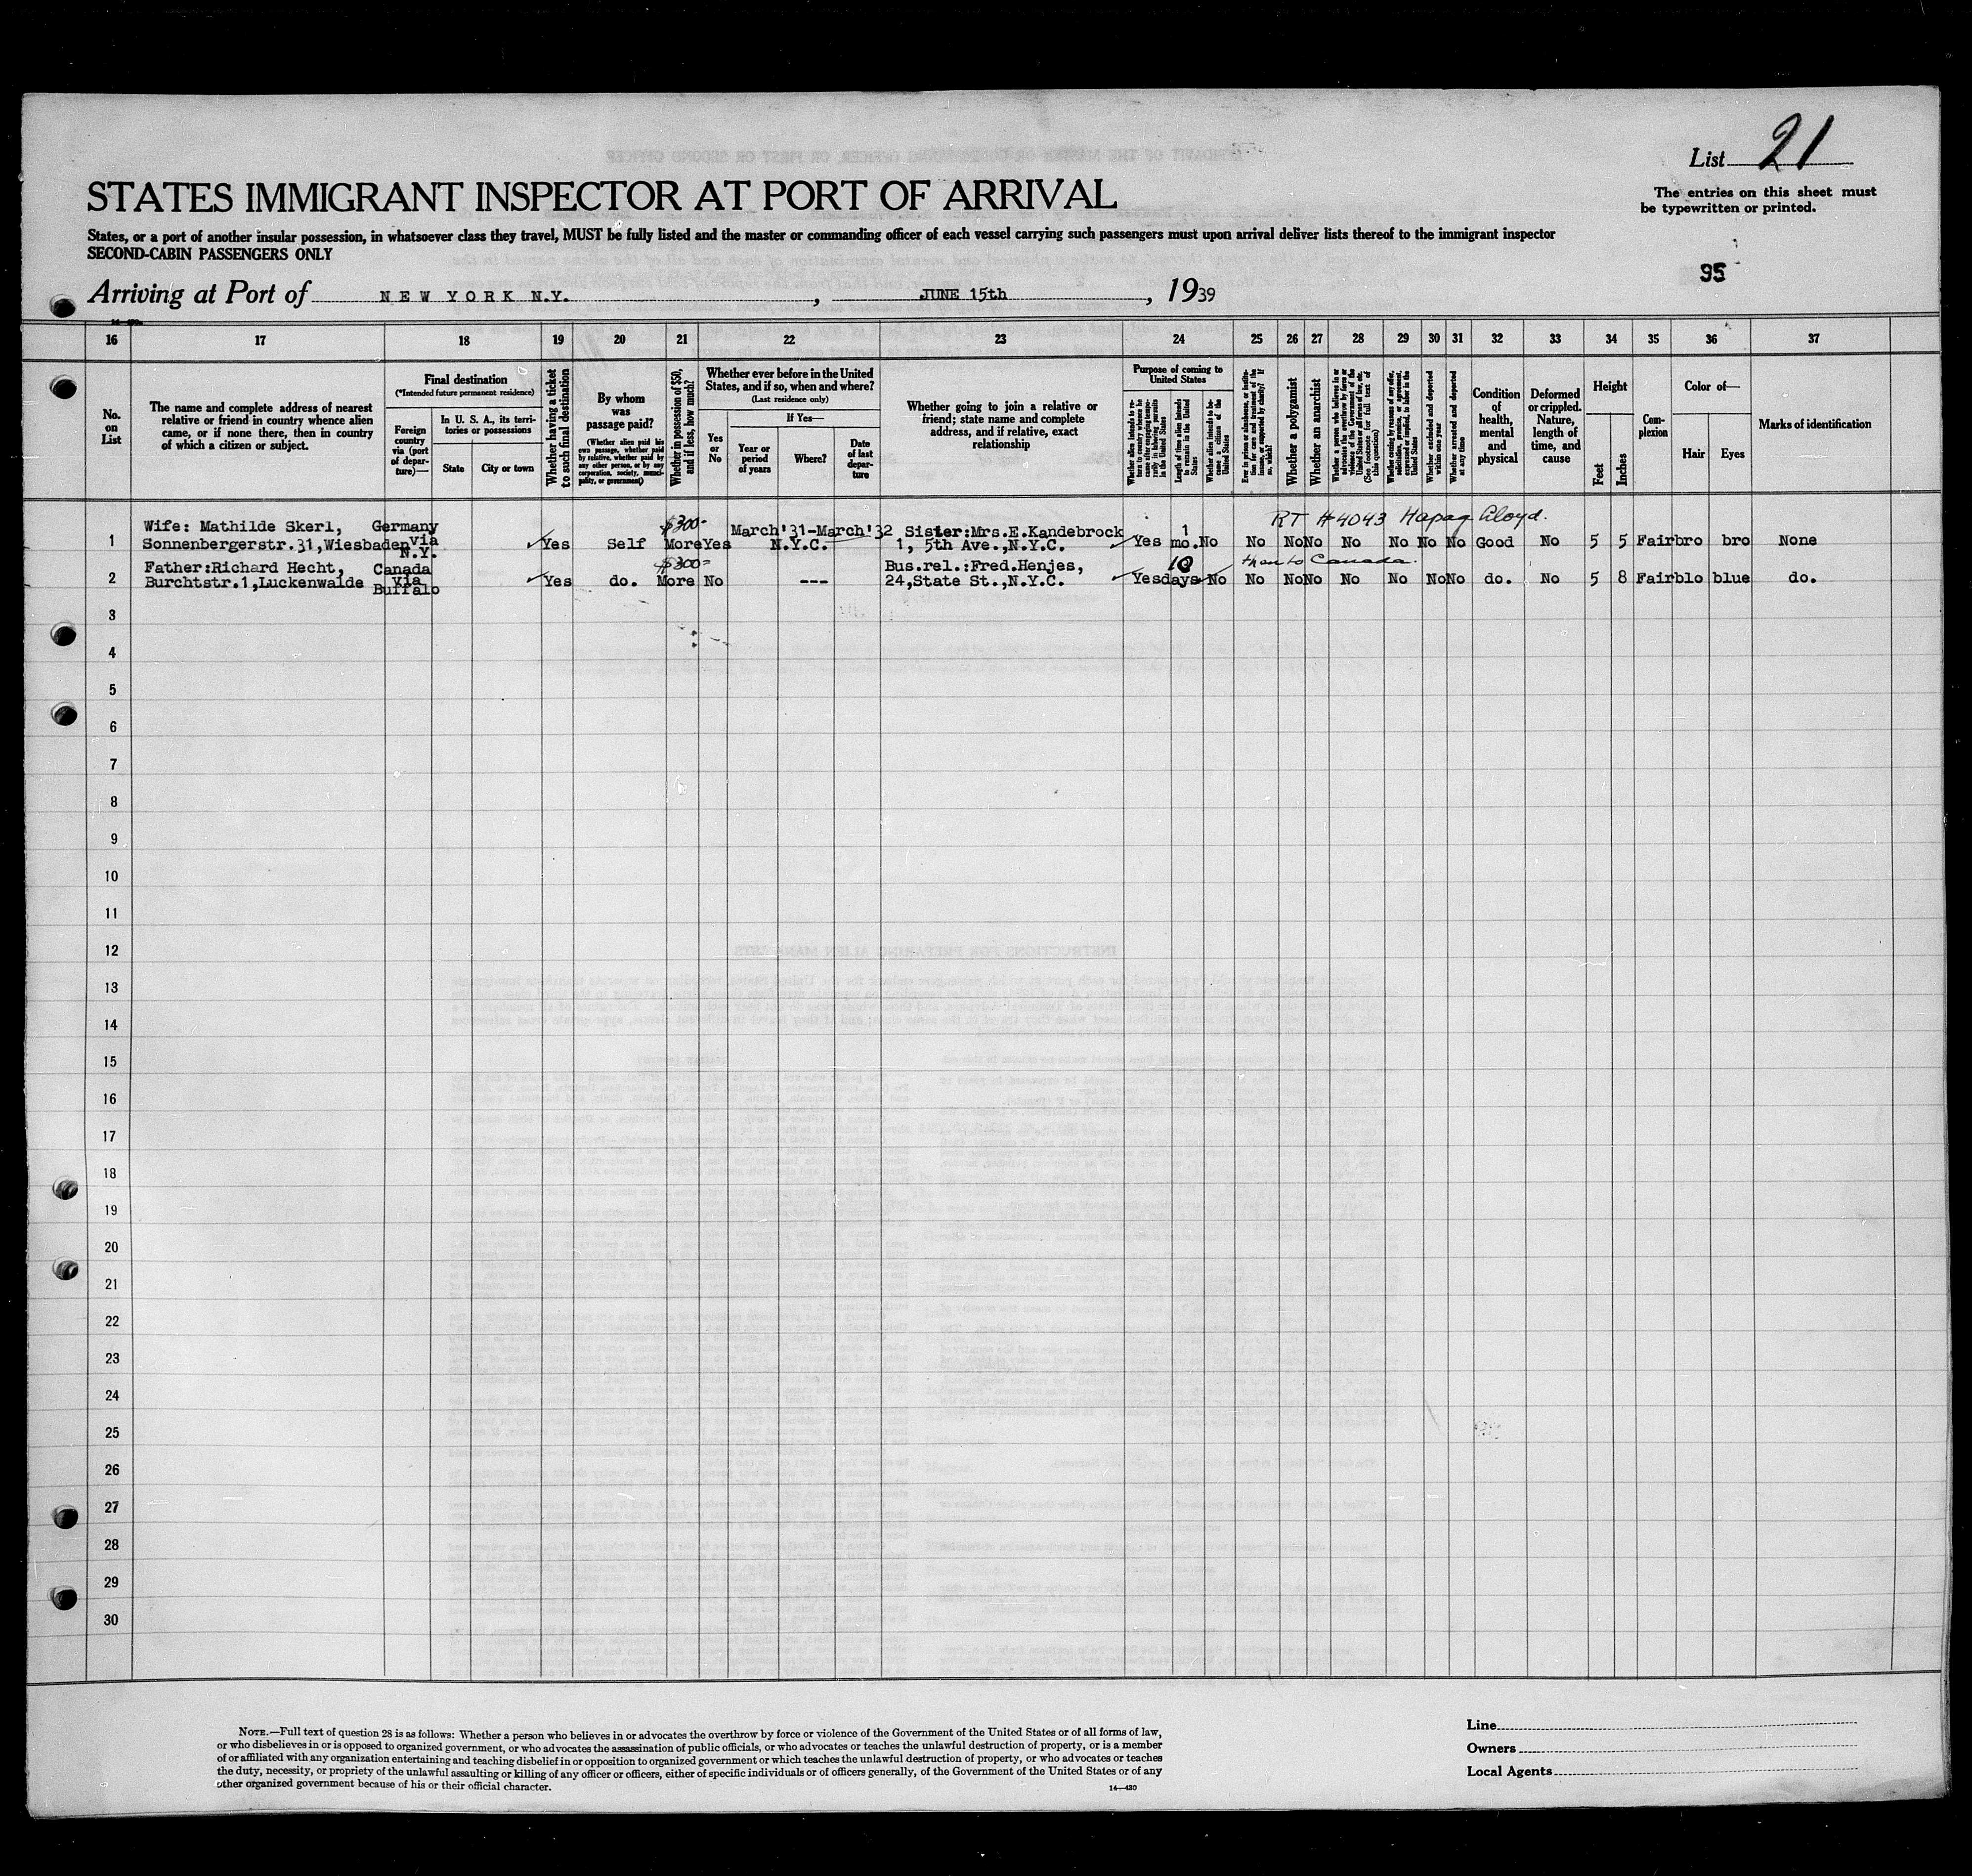 List 21
The entries on this sheet must
be typewritten or printed.
STATES IMMIGRANT INSPECTOR AT PORT OF ARRIVAL
States, or a port of another insular possession, in whatsoever class they travel, MUST be fully listed and the master or commanding officer of each vessel carrying such passengers must upon arrival deliver lists thereof to the immigrant inspector
SECOND-CABIN PASSENGERS ONLY
95
Arriving at Port of NEW YORK N.Y. , JUNE 15th , 1939
16 17 18 19 20 21 22 23 24 25 26 27 28 29 30 31 32 33 34 35 36 37
No.
on
List
The name and complete address of nearest
relative or friend in country whence alien
came, or if none there, then in country
of which a citizen or subject.
Final destination
(*Intended future permanent residence)
Foreign
country
via (port
of depar-
ture)—
In U. S. A., its terri-
tories or possessions
State
City or town
Whether having a ticket
to such final destination
By whom
was
passage paid?
(Whether alien paid his
own passage, whether paid
by relative, whether paid by
any other person, or by any
corporation, society, munici-
pality, or government)
Whether in possession of $50,
and if less, how much?
Whether ever before in the United
States, and if so, when and where?
(Last residence only)
Yes
or
No
If Yes—
Year or
period
of years
Where?
Date
of last
depar-
ture
Whether going to join a relative or
friend; state name and complete
address, and if relative, exact
relationship
Purpose of coming to
United States
Whether alien intends to re-
turn to country whence he
came after engaging tempo-
rarily in laboring pursuits
in the United States
Length of time alien intends
to remain in the United
States
Whether alien intends to be-
come a citizen of the
United States
Ever in prison or almshouse, or institu-
tion for care and treatment of the
insane, or supported by charity? If
so, which?
Whether a polygamist
Whether an anarchist
Whether a person who believes in or
advocates the overthrow by force or
violence of the Government of the
United States or all forms of law, etc.
(See footnote for full text of
this question)
Whether coming by reason of any offer,
solicitation, promise, or agreement,
expressed or implied, to labor in the
United States
Whether excluded and deported
within one year
Whether arrested and deported
at any time
Condition
of
health,
mental
and
physical
Deformed
or crippled.
Nature,
length of
time, and
cause
Height
Feet
Inches
Com-
plexion
Color of—
Hair
Eyes
Marks of identification
RT #4043 Hapag Lloyd.
Wife: Mathilde Skerl, Germany $300- March'31-March'32 Sister:Mrs.E.Kandebrock 1
1 Sonnenbergerstr.31,Wiesbaden via N.Y. Yes Self More Yes N.Y.C. 1, 5th Ave.,N.Y.C. Yes mo. No No No No No No No No Good No 5 5 Fair bro bro None
Father:Richard Hecht, Canada $300- Bus.rel.:Fred.Henjes, 10 than to Canada.
2 Burchtstr.1,Luckenwalde via Buffalo Yes do. More No --- 24,State St.,N.Y.C. Yes days No No No No No No No No do. No 5 8 Fair blo blue do.
3
4
5
6
7
8
9
10
11
12
13
14
15
16
17
18
19
20
21
22
23
24
25
26
27
28
29
30
NOTE.—Full text of question 28 is as follows: Whether a person who believes in or advocates the overthrow by force or violence of the Government of the United States or of all forms of law,
or who disbelieves in or is opposed to organized government, or who advocates the assassination of public officials, or who advocates or teaches the unlawful destruction of property, or is a member
of or affiliated with any organization entertaining and teaching disbelief in or opposition to organized government or which teaches the unlawful destruction of property, or who advocates or teaches
the duty, necessity, or propriety of the unlawful assaulting or killing of any officer or officers, either of specific individuals or of officers generally, of the Government of the United States or of any
other organized government because of his or their official character.
14—430
Line
Owners
Local Agents